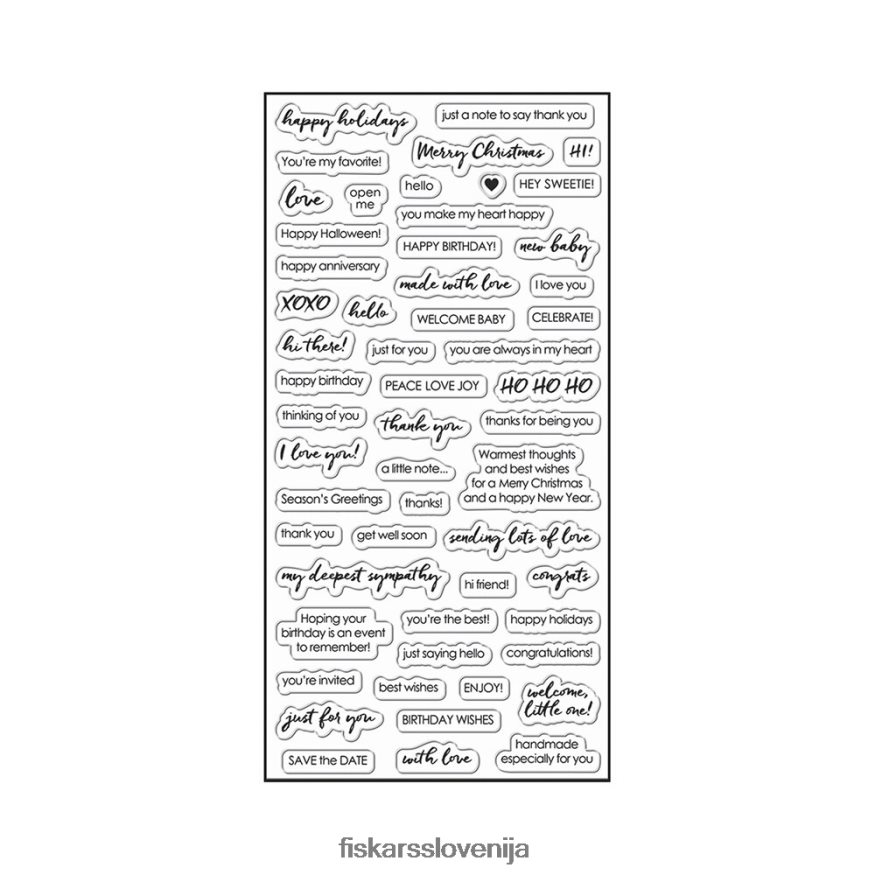 happy holidays
just a note to say thank you
Merry Christmas
HI!
You're my favorite!
love
open
me
hello
HEY SWEETIE!
you make my heart happy
Happy Halloween!
HAPPY BIRTHDAY!
new baby
happy anniversary
made with love
I love you
XOXO
hello
WELCOME BABY
CELEBRATE!
hi there!
just for you
you are always in my heart
happy birthday
PEACE LOVE JOY
HO HO HO
thinking of you
thank you
thanks for being you
I love you!
a little note...
Warmest thoughts
and best wishes
for a Merry Christmas
and a happy New Year.
Season's Greetings
thanks!
thank you
get well soon
sending lots of love
my deepest sympathy
hi friend!
congrats
Hoping your
birthday is an event
to remember!
you're the best!
happy holidays
just saying hello
congratulations!
you're invited
best wishes
ENJOY!
welcome,
little one!
just for you
BIRTHDAY WISHES
SAVE the DATE
with love
handmade
especially for you
fiskarsslovenija